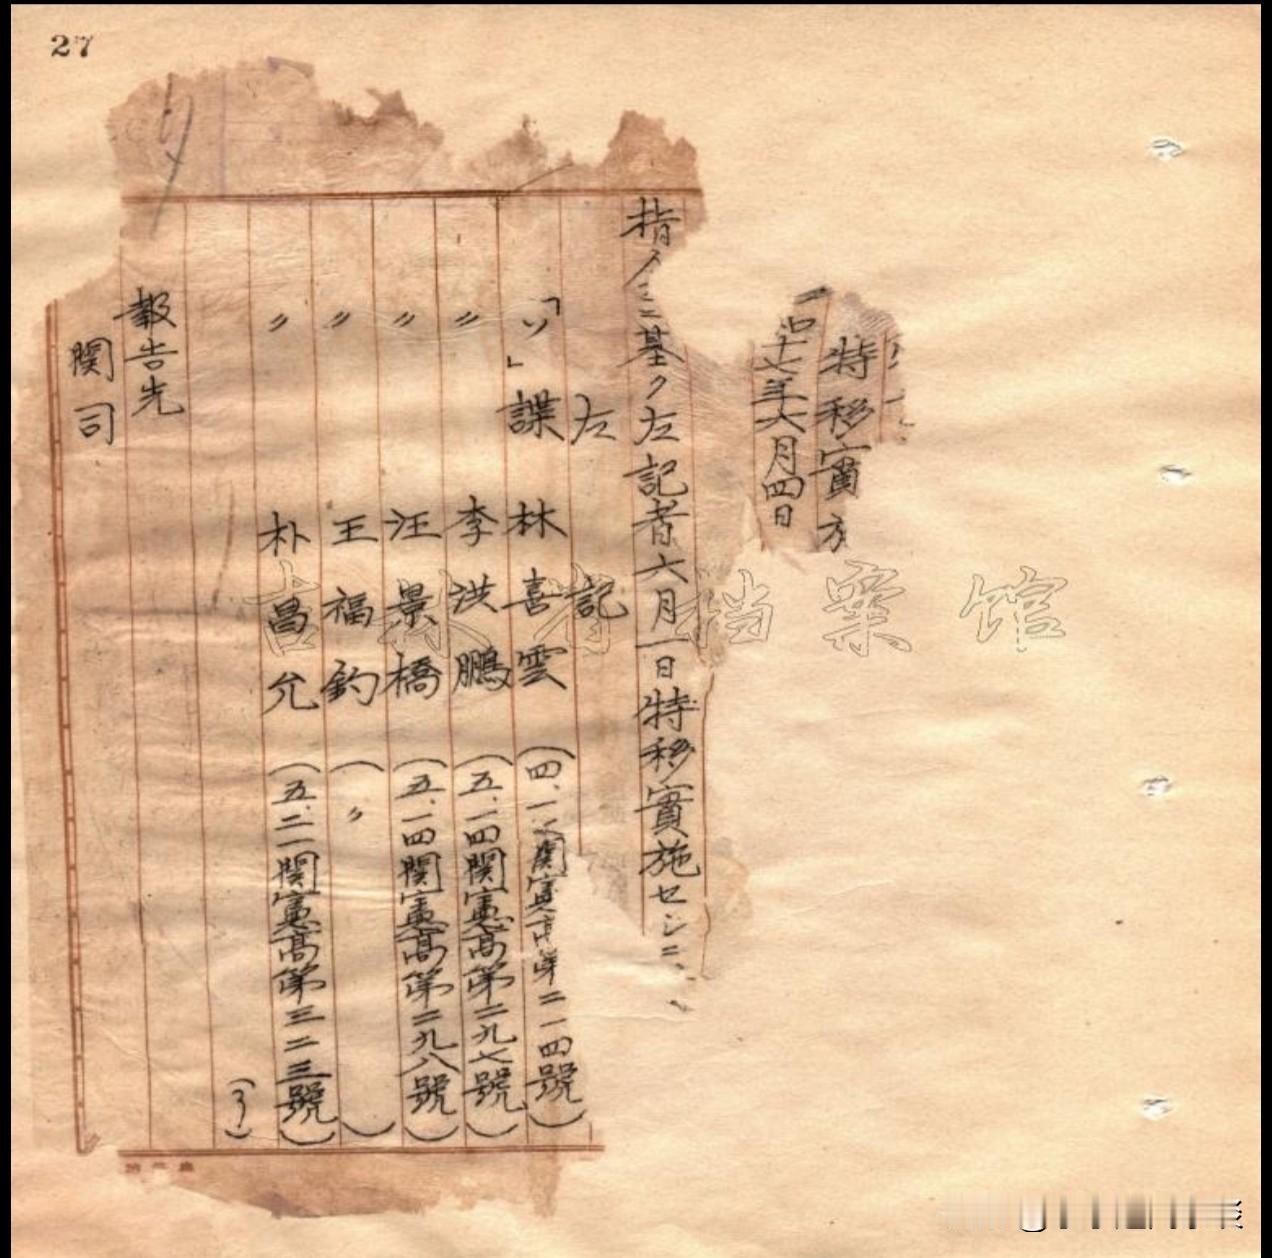 27
特移實
十七年六月四日
指
基ク左記者六月一日特移實施セシ
左記
「ソ」諜 林喜雲 (四.一 關憲高第二一四號)
〃 李洪鵬 (五.一四關憲高第二九七號)
〃 汪景橋 (五.一四關憲高第二九八號)
〃 王福鈞 (〃)
〃 朴昌允 (五.二一關憲高第三二三號)
(了)
報告先
関司
吉林省档案馆